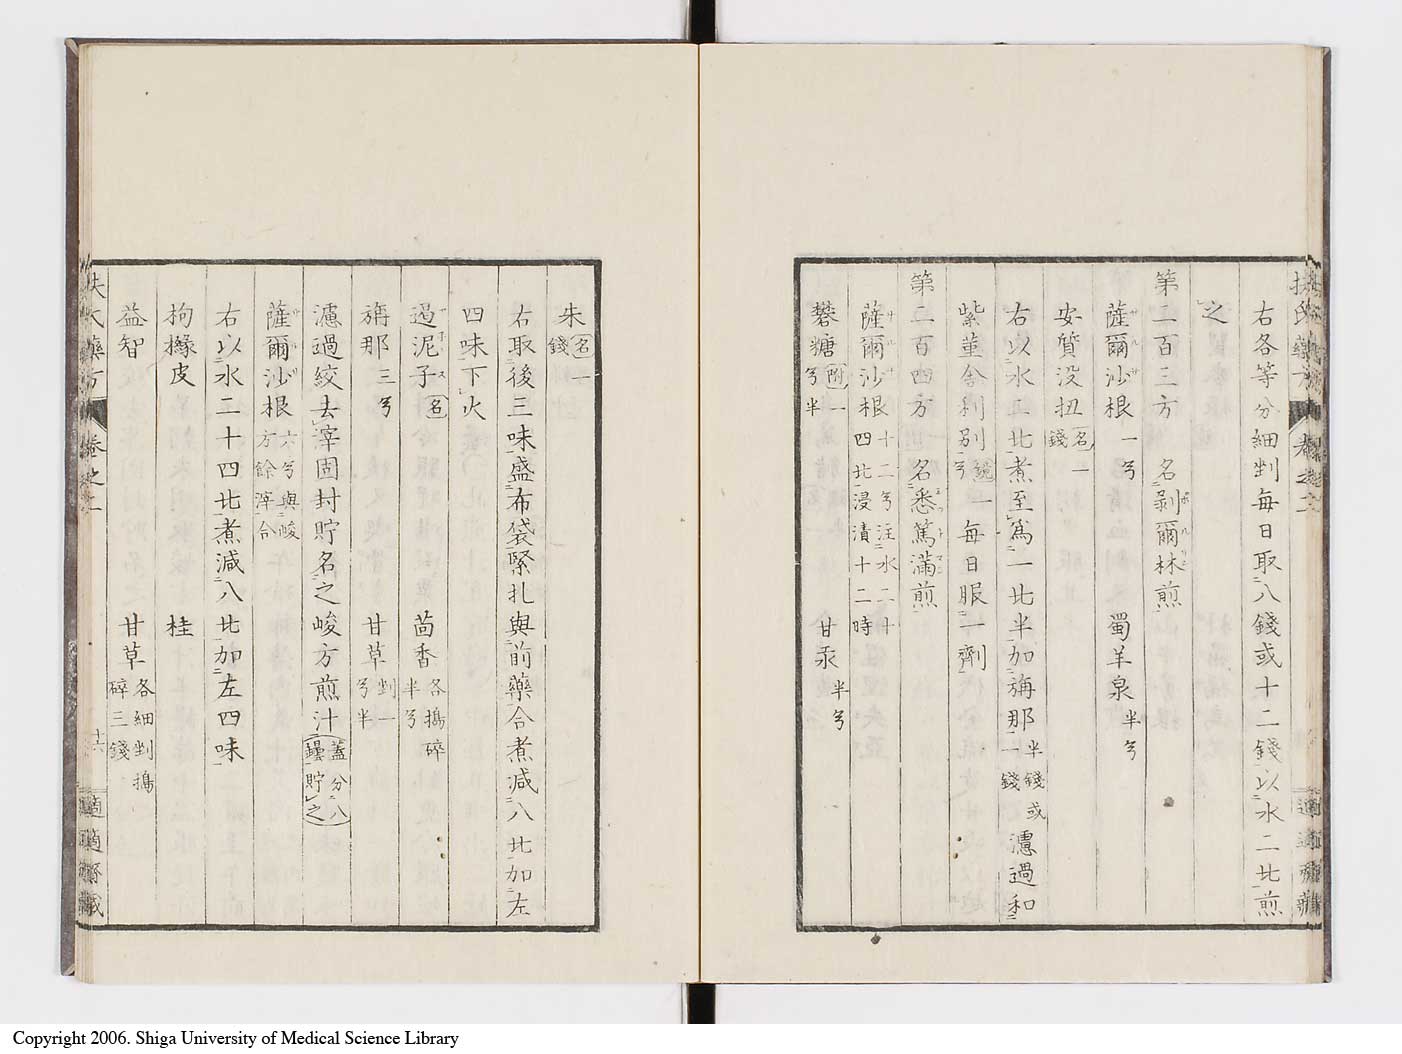 右各等分細剉每日取八錢或十二錢以水二比煎
之
第二百三方 名剥爾林煎
薩爾沙根 一兮 蜀羊泉 半兮
安質没扭 名 一錢
右以水二比煮至爲一比半加旃那 半錢或一錢 濾過和
紫菫舎利別 一兮 每日服一劑
第二百四方 名悉篤満煎
薩爾沙根 十二兮注水二十四比浸漬十二時
礬糖 附 一兮半 甘汞 半兮
朱 名 一錢
右取後三味盛布袋緊扎與前藥合煮減八比加左
四味下火
過泥子 名 茴香 各搗碎半兮
旃那 三兮 甘草 剉一兮半
濾過絞去滓固封貯名之峻方煎汁 蓋分八罎貯之
薩爾沙根 六兮與峻方餘滓合
右以水二十四比煮減八比加左四味
拘櫞皮 桂
益智 甘草 各細剉搗碎三錢
扶氏藥方 卷之二 十六 適適齋藏
Copyright 2006. Shiga University of Medical Science Library